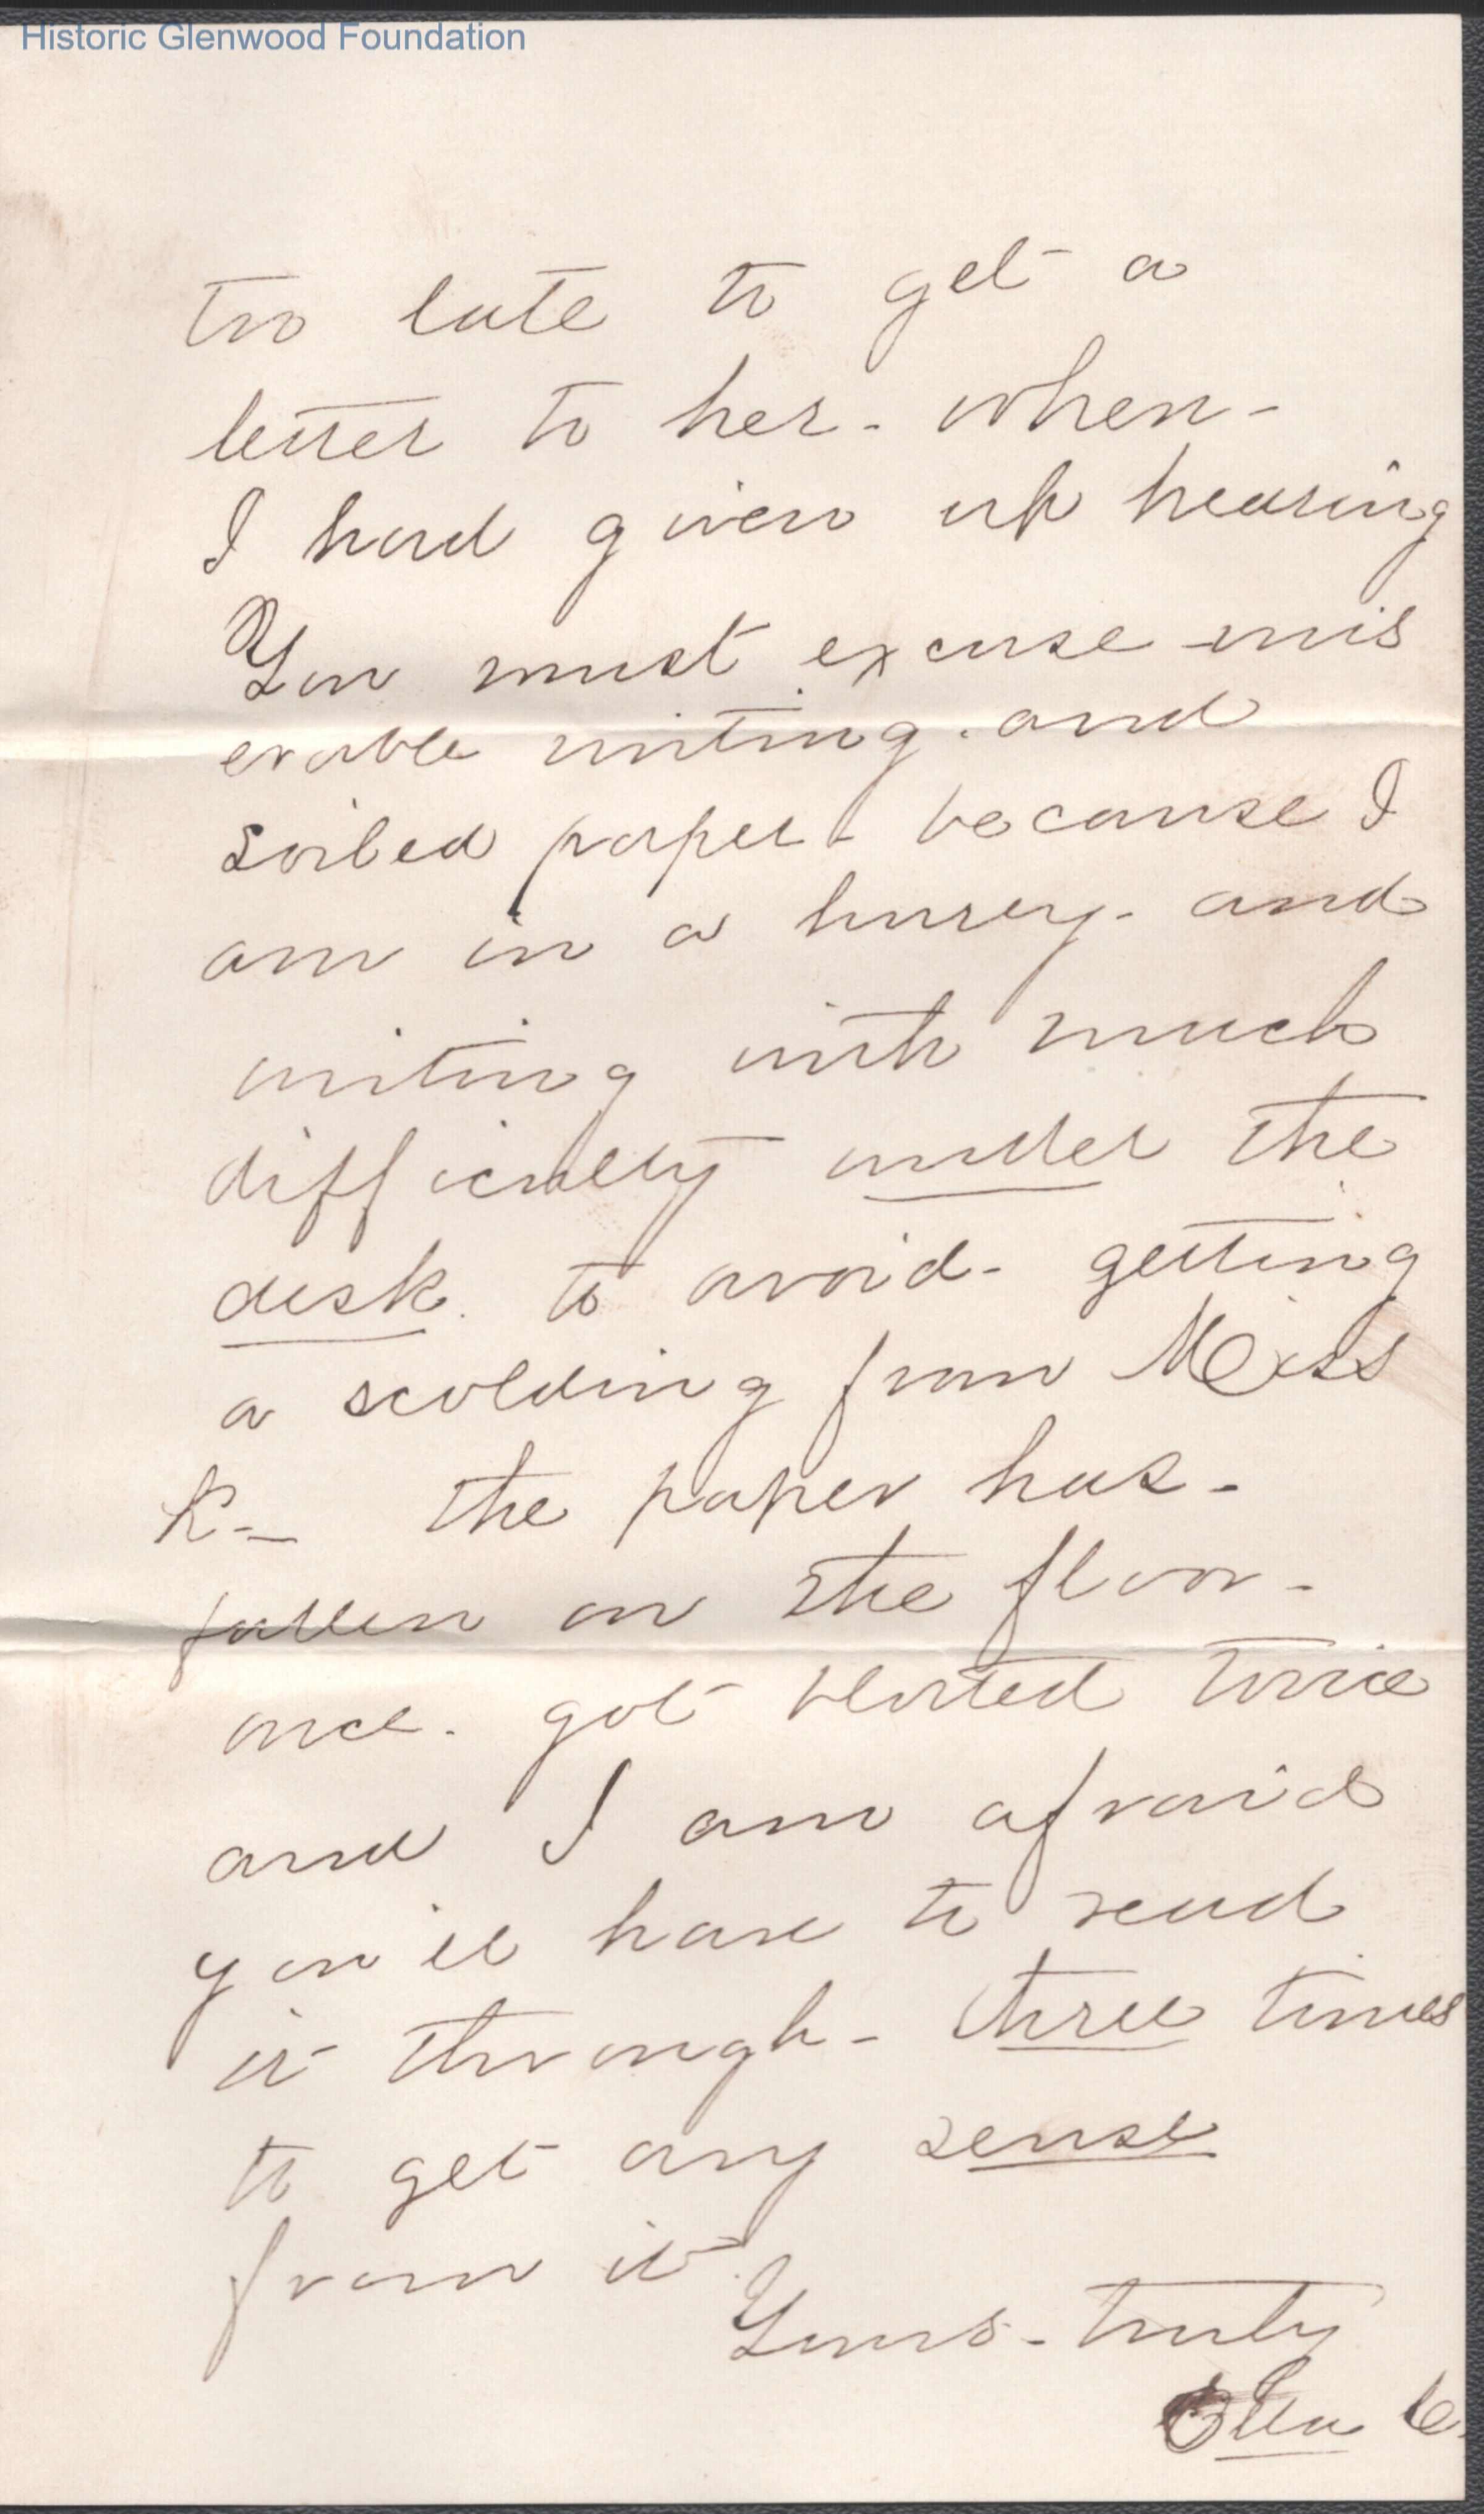 Historic Glenwood Foundation
too late to get a
letter to her - when -
I had given up hearing
You must excuse mis
erable writing. and
soiled paper - because I
am in a hurry - and
writing with much
difficulty under the
desk. to avoid - getting
a scolding from Miss
R - the paper has -
fallen on the floor -
once - got blotted twice
and I am afraid
you'll have to read
it through - three times
to get any sense
from it.
Yours - truly
Ella C.